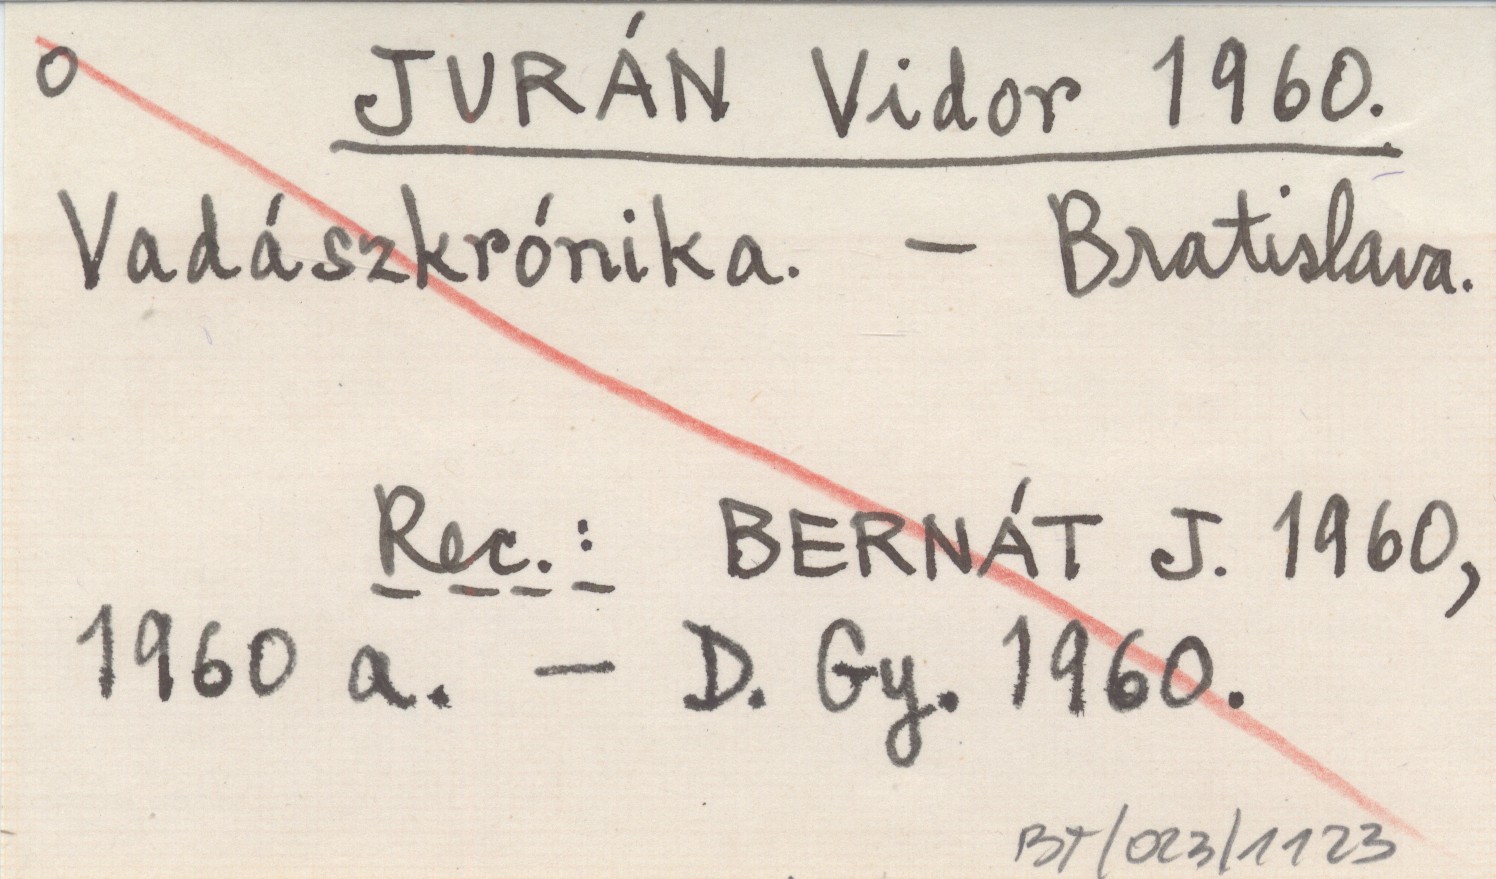 o JURÁN Vidor 1960.
Vadászkrónika. – Bratislava.
Rec.: BERNÁT J. 1960,
1960 a. – D. Gy. 1960.
BT/023/1123